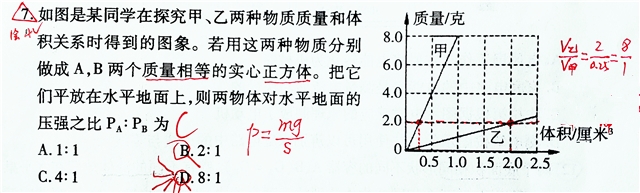 7. 如图是某同学在探究甲、乙两种物质质量和体
积关系时得到的图象。若用这两种物质分别
做成 A,B 两个质量相等的实心正方体。把它
们平放在水平地面上,则两物体对水平地面的
压强之比 PA:PB 为 C
A. 1:1 B. 2:1
C. 4:1 D. 8:1
p=mg/s
质量/克
8.0
6.0
4.0
2.0
0
甲
乙
0.5 1.0 1.5 2.0 2.5
体积/厘米³
V乙/V甲=2/0.25=8/1